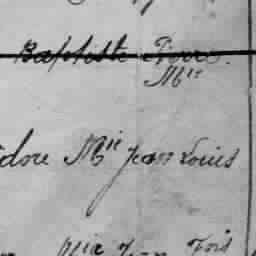 Baptiste Pierre.
Mie
dore Mie Jean Louis
Mie Jean Fois